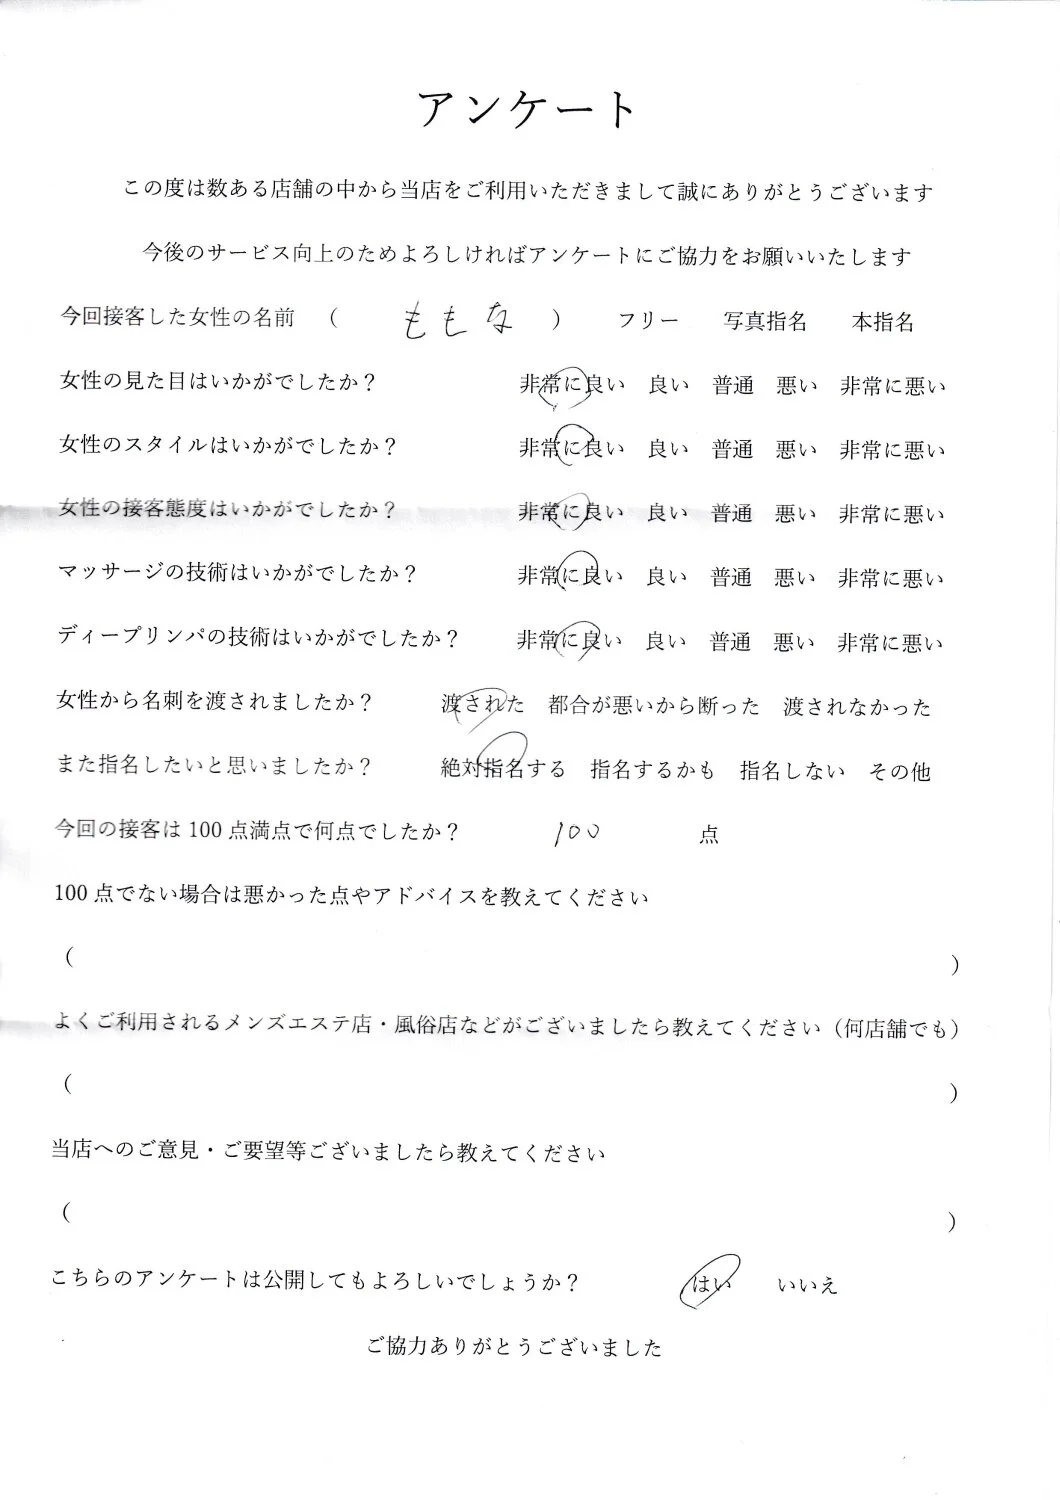 アンケート
この度は数ある店舗の中から当店をご利用いただきまして誠にありがとうございます
今後のサービス向上のためよろしければアンケートにご協力をお願いいたします
今回接客した女性の名前 （ ももな ） フリー 写真指名 本指名
女性の見た目はいかがでしたか？ 非常に良い 良い 普通 悪い 非常に悪い
女性のスタイルはいかがでしたか？ 非常に良い 良い 普通 悪い 非常に悪い
女性の接客態度はいかがでしたか？ 非常に良い 良い 普通 悪い 非常に悪い
マッサージの技術はいかがでしたか？ 非常に良い 良い 普通 悪い 非常に悪い
ディープリンパの技術はいかがでしたか？ 非常に良い 良い 普通 悪い 非常に悪い
女性から名刺を渡されましたか？ 渡された 都合が悪いから断った 渡されなかった
また指名したいと思いましたか？ 絶対指名する 指名するかも 指名しない その他
今回の接客は 100 点満点で何点でしたか？ 100 点
100 点でない場合は悪かった点やアドバイスを教えてください
（ ）
よくご利用されるメンズエステ店・風俗店などがございましたら教えてください（何店舗でも）
（ ）
当店へのご意見・ご要望等ございましたら教えてください
（ ）
こちらのアンケートは公開してもよろしいでしょうか？ はい いいえ
ご協力ありがとうございました